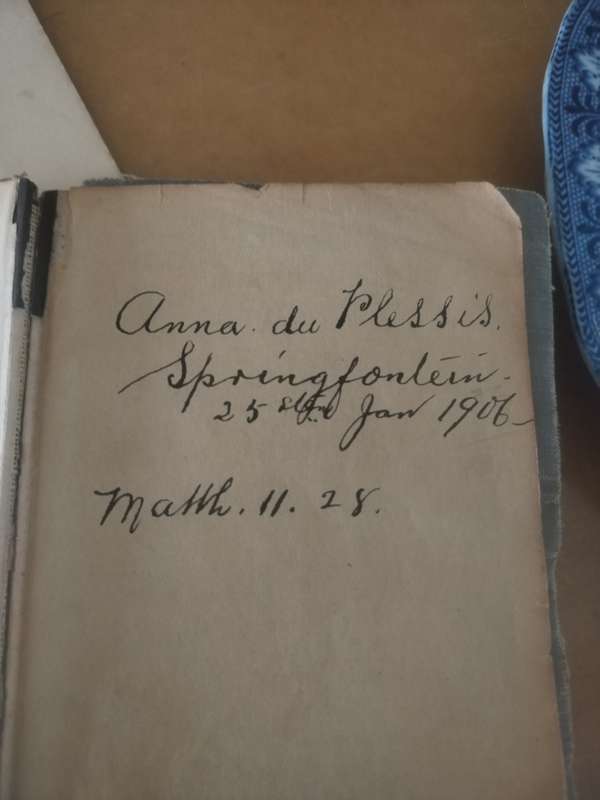 Anna. du Plessis.
Springfontein.
25 Jan 1906
Matth. 11. 28.